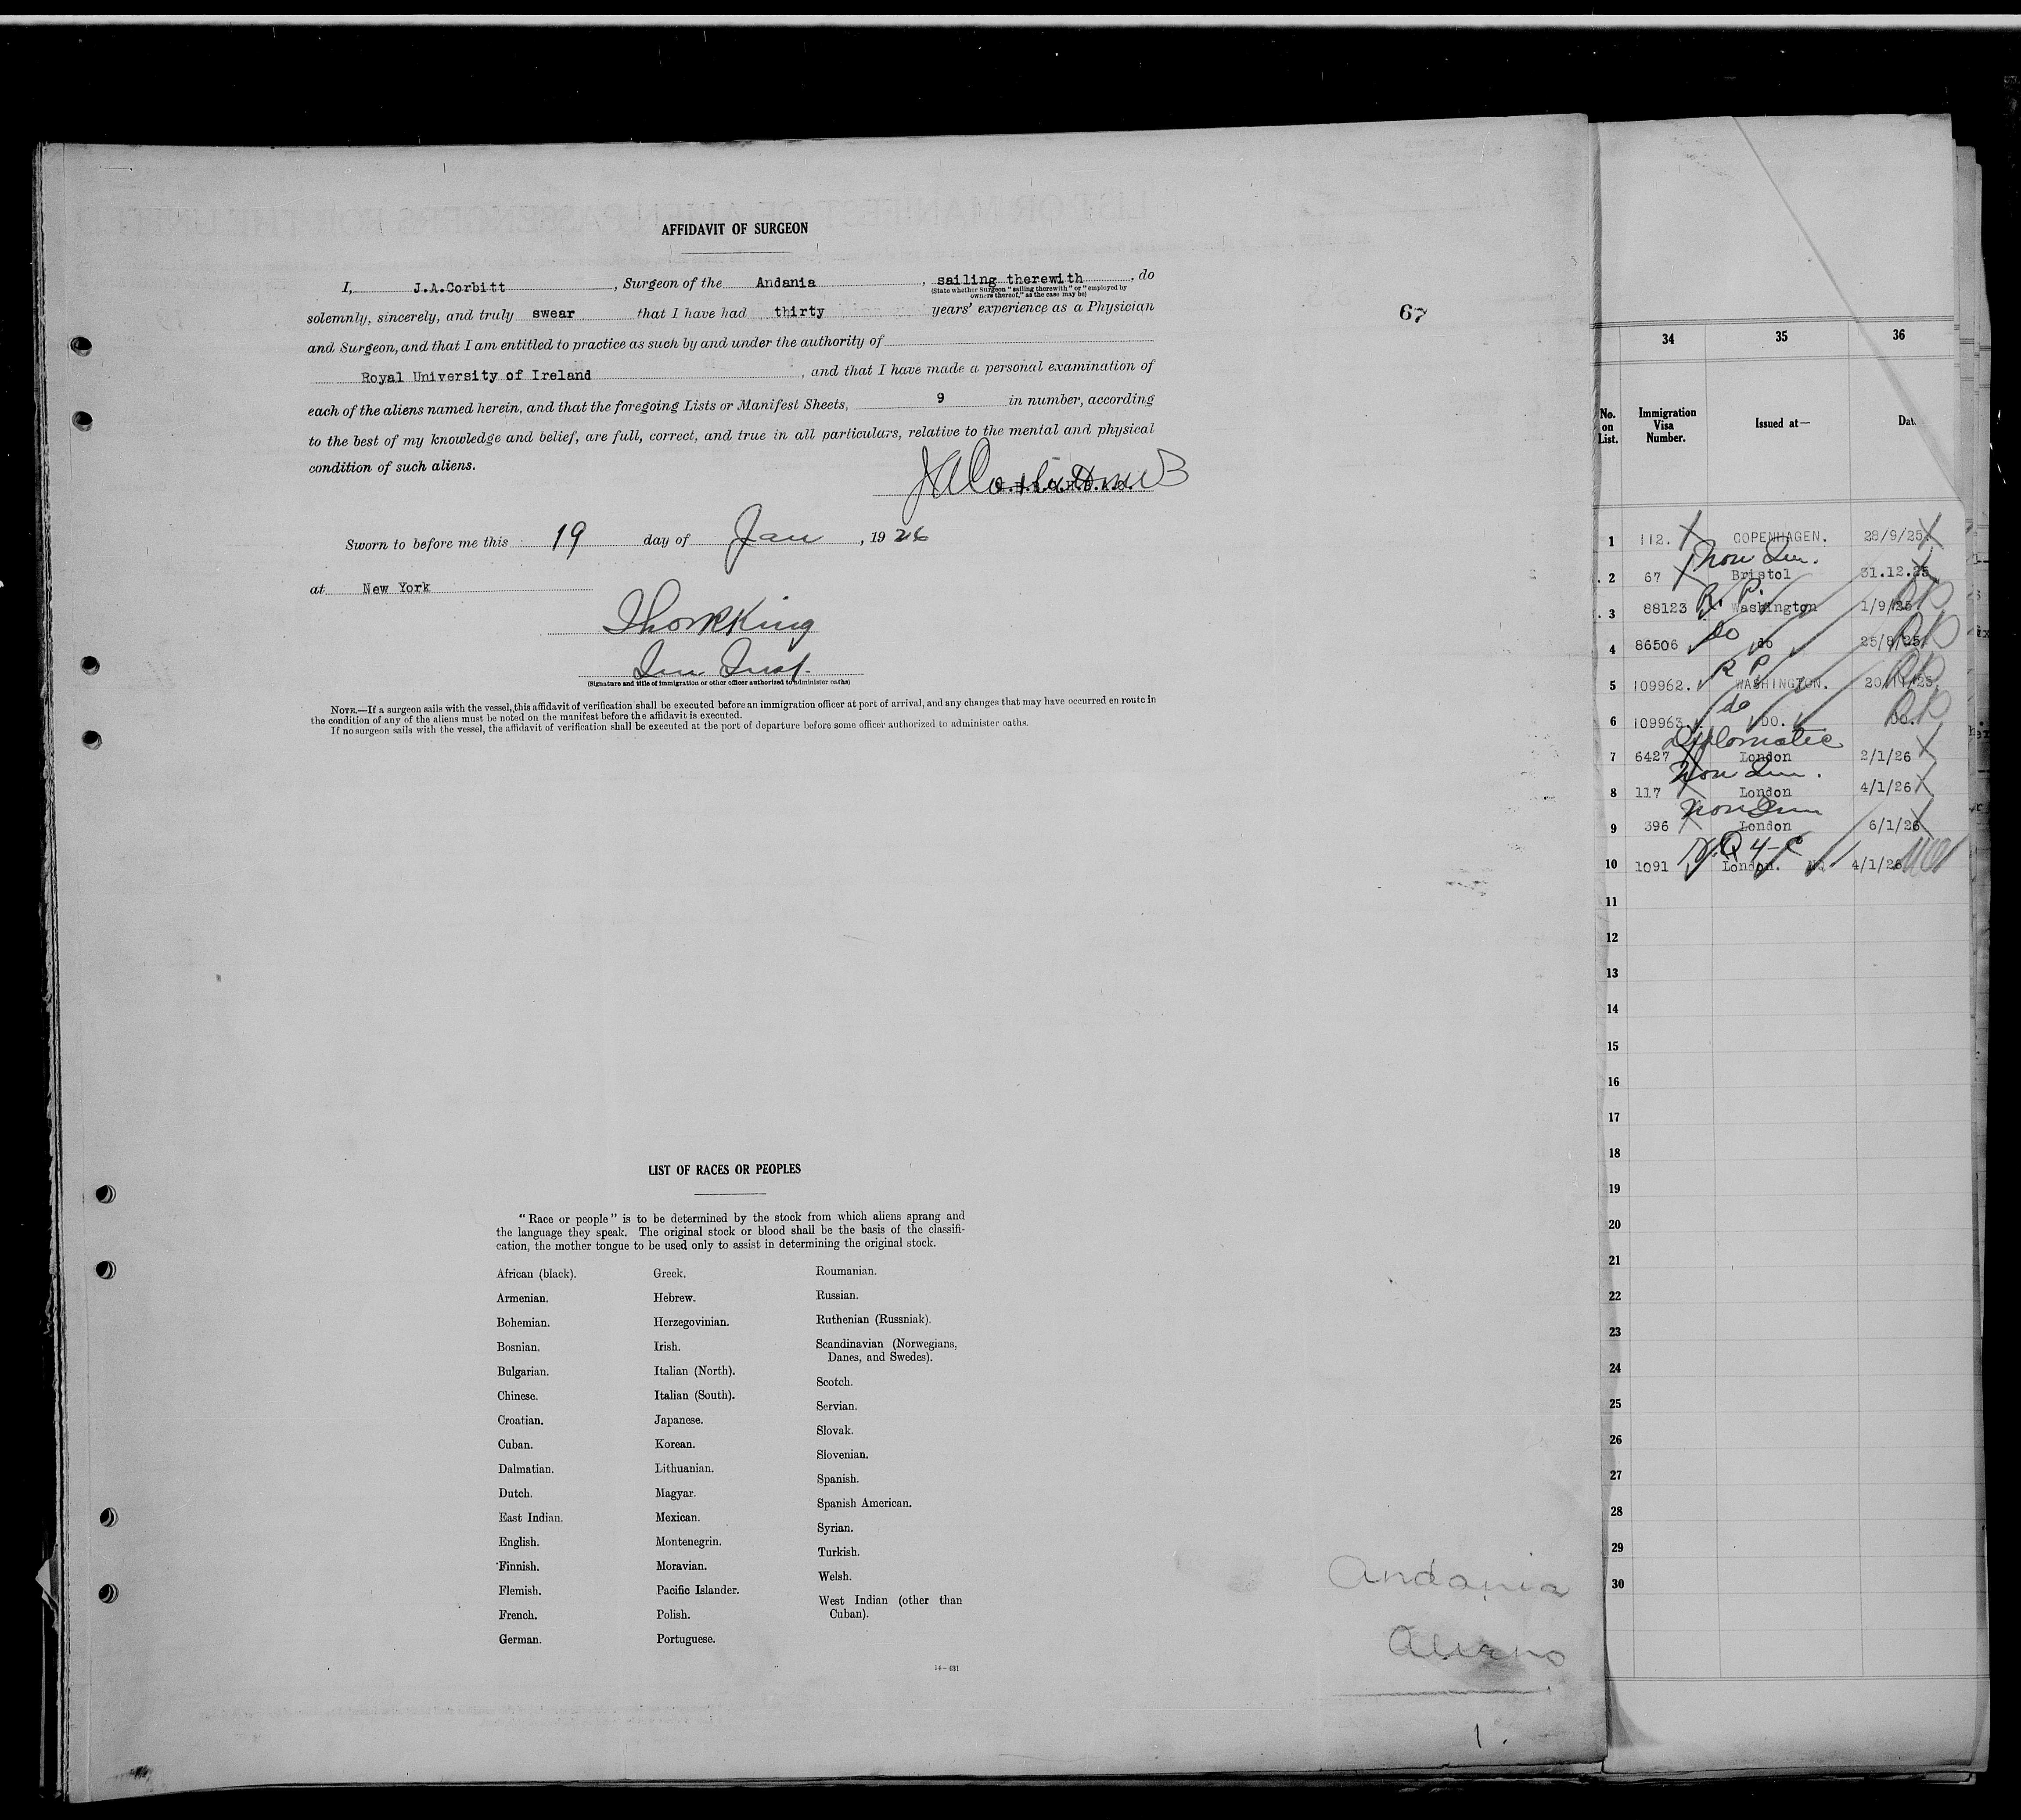 AFFIDAVIT OF SURGEON
I, J.A.Corbitt, Surgeon of the Andania, sailing therewith, do
(State whether Surgeon "sailing therewith" or "employed by
owners thereof," as the case may be)
solemnly, sincerely, and truly swear that I have had thirty years' experience as a Physician
and Surgeon, and that I am entitled to practice as such by and under the authority of
Royal University of Ireland, and that I have made a personal examination of
each of the aliens named herein, and that the foregoing Lists or Manifest Sheets, 9 in number, according
to the best of my knowledge and belief, are full, correct, and true in all particulars, relative to the mental and physical
condition of such aliens.
Sworn to before me this 19 day of Jan, 1926
at New York
King
(Signature and title of immigration or other officer authorized to administer oaths)
NOTE.—If a surgeon sails with the vessel, this affidavit of verification shall be executed before an immigration officer at port of arrival, and any changes that may have occurred en route in
the condition of any of the aliens must be noted on the manifest before the affidavit is executed.
If no surgeon sails with the vessel, the affidavit of verification shall be executed at the port of departure before some officer authorized to administer oaths.
67
LIST OF RACES OR PEOPLES
"Race or people" is to be determined by the stock from which aliens sprang and
the language they speak. The original stock or blood shall be the basis of the classifi-
cation, the mother tongue to be used only to assist in determining the original stock.
African (black).
Armenian.
Bohemian.
Bosnian.
Bulgarian.
Chinese.
Croatian.
Cuban.
Dalmatian.
Dutch.
East Indian.
English.
Finnish.
Flemish.
French.
German.
Greek.
Hebrew.
Herzegovinian.
Irish.
Italian (North).
Italian (South).
Japanese.
Korean.
Lithuanian.
Magyar.
Mexican.
Montenegrin.
Moravian.
Pacific Islander.
Polish.
Portuguese.
Roumanian.
Russian.
Ruthenian (Russniak).
Scandinavian (Norwegians,
Danes, and Swedes).
Scotch.
Servian.
Slovak.
Slovenian.
Spanish.
Spanish American.
Syrian.
Turkish.
Welsh.
West Indian (other than
Cuban).
14—431
Andania
Aliens
1.
34 35 36
No.
on
List.
Immigration
Visa
Number.
Issued at—
Dat
1 112. COPENHAGEN. 28/9/25
Non Im.
2 67 Bristol 31.12.25
R. P.
3 88123 Washington 1/9/25
do
4 86506 do 25/8/25
R P
5 109962. WASHINGTON. 20/11/25.
do
6 109963. DO. DO.
Diplomatic
7 6427 London 2/1/26
Non Im.
8 117 London 4/1/26
Non Imm
9 396 London 6/1/26
N.Q 4-c
10 1091 London. NQ 4/1/26
11
12
13
14
15
16
17
18
19
20
21
22
23
24
25
26
27
28
29
30